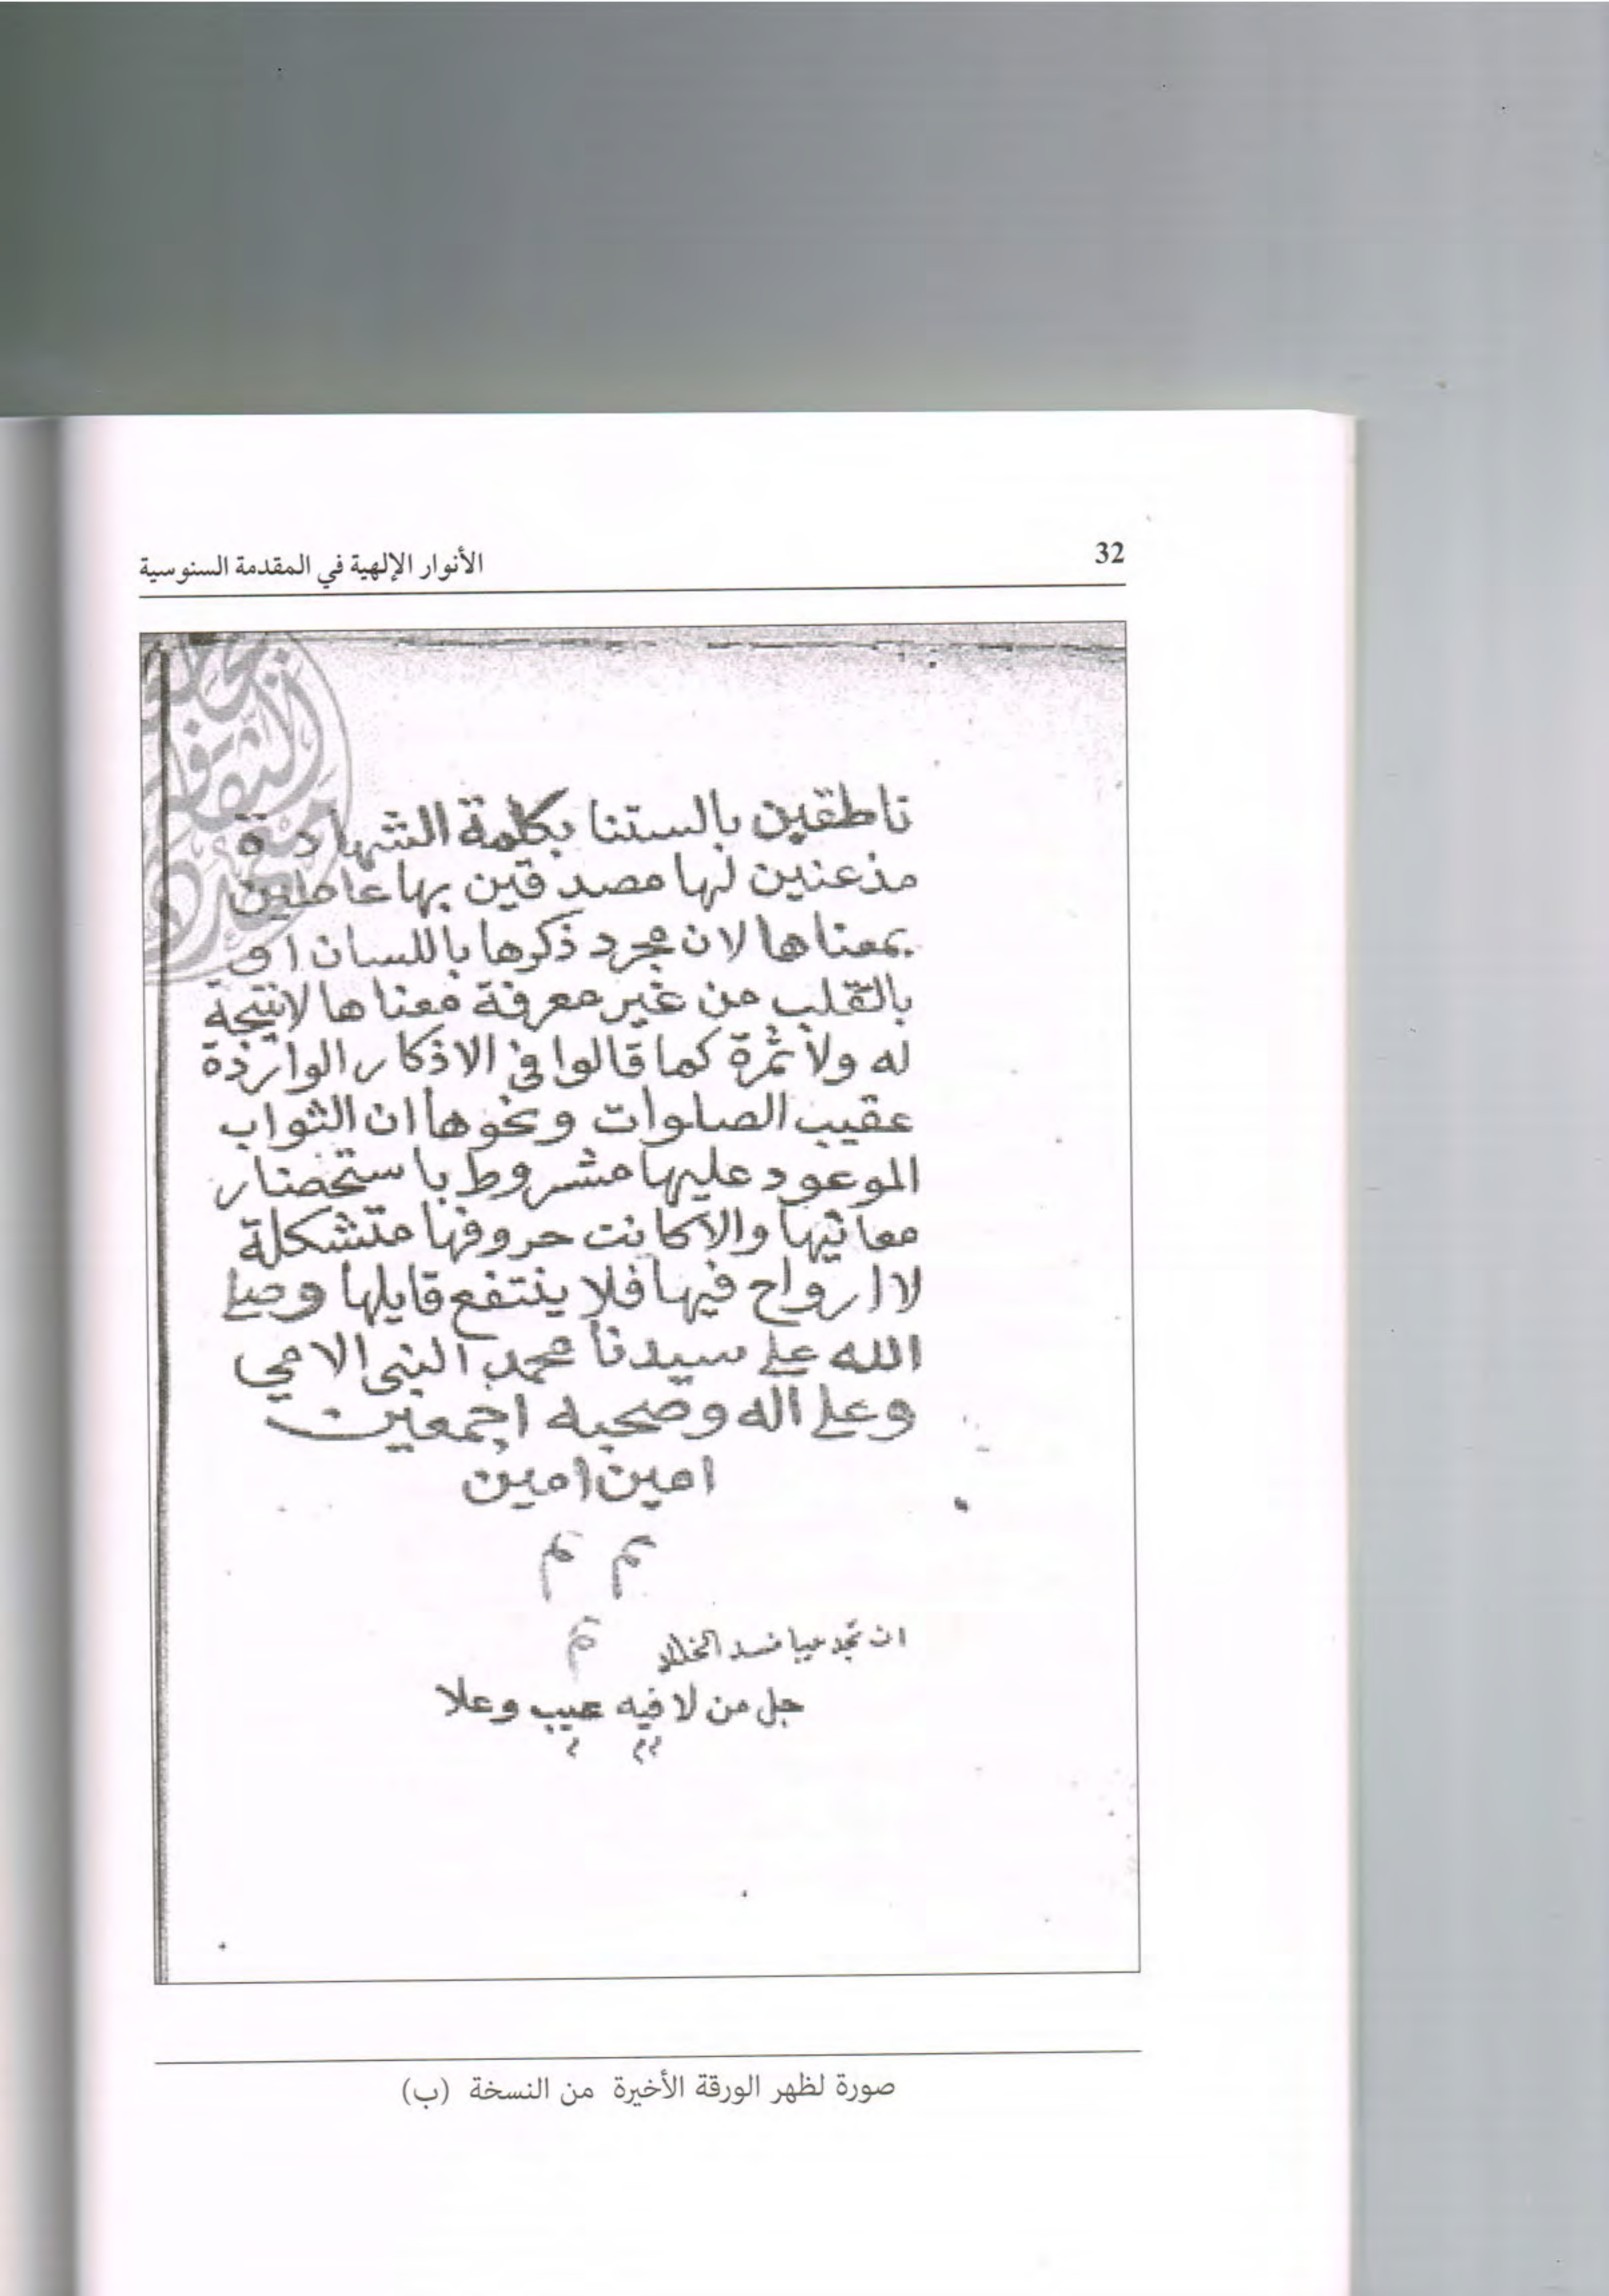 32
الأنوار الإلهية في المقدمة السنوسية
ناطقين بالستنا بكلمة الشهادة
مذعنين لها مصدقين بها عاملين
بمعناها لان مجرد ذكرها باللسان او
بالقلب من غير معرفة معناها لا نتيجة
له ولا ثمرة كما قالوا في الاذكار الواردة
عقيب الصلوات ونحوها ان الثواب
الموعود عليها مشروط باستحضار
معانيها والا كانت حروفها متشكلة
لا ارواح فيها فلا ينتفع قايلها وصلى
الله على سيدنا محمد النبي الامي
وعلى اله وصحبه اجمعين
امين امين
م م
م
ان تجد عيبا فسد الخللا
جل من لا فيه عيب وعلا
صورة لظهر الورقة الأخيرة من النسخة (ب)